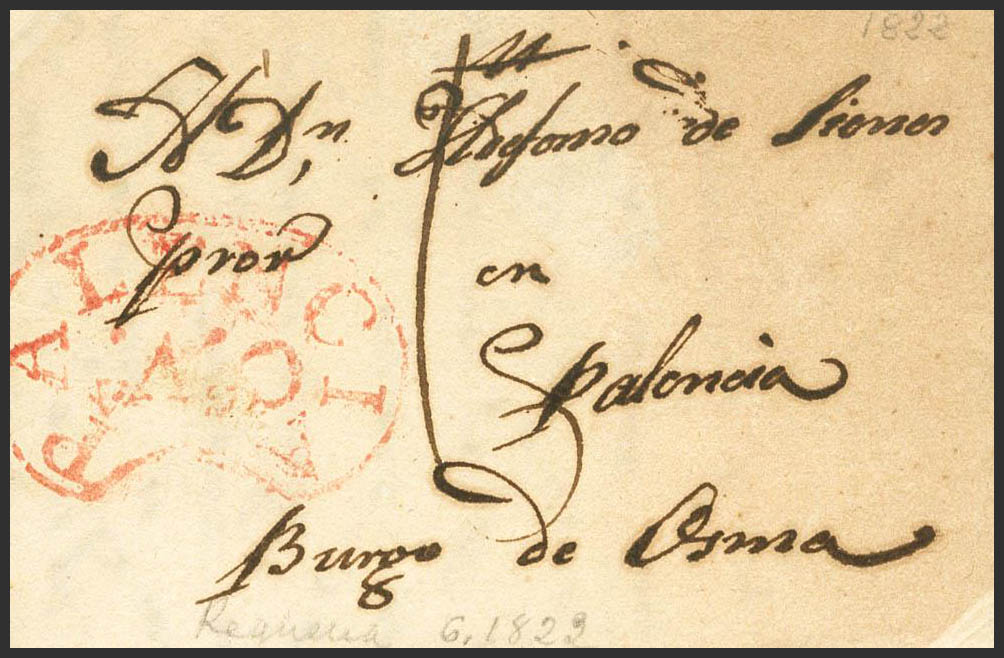 1822
A Dn. Ildefonso de
pror en
Palencia
Burgo de Osma
PALENCIA
Requena 6.1822